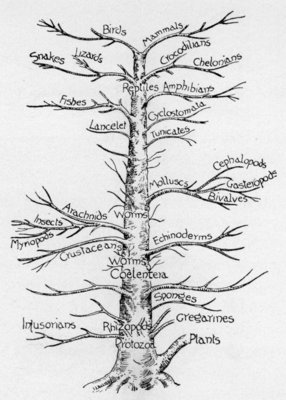 Birds
Mammals
Snakes
Lizards
Crocodilians
Chelonians
Reptiles
Amphibians
Fishes
Cyclostomata
Lancelet
Tunicates
Cephalopods
Molluscs
Gasteropods
Bivalves
Arachnids
Worms
Insects
Myriopods
Echinoderms
Crustaceans
Worms
Coelentera
Sponges
Infusorians
Rhizopods
Gregarines
Protozoa
Plants